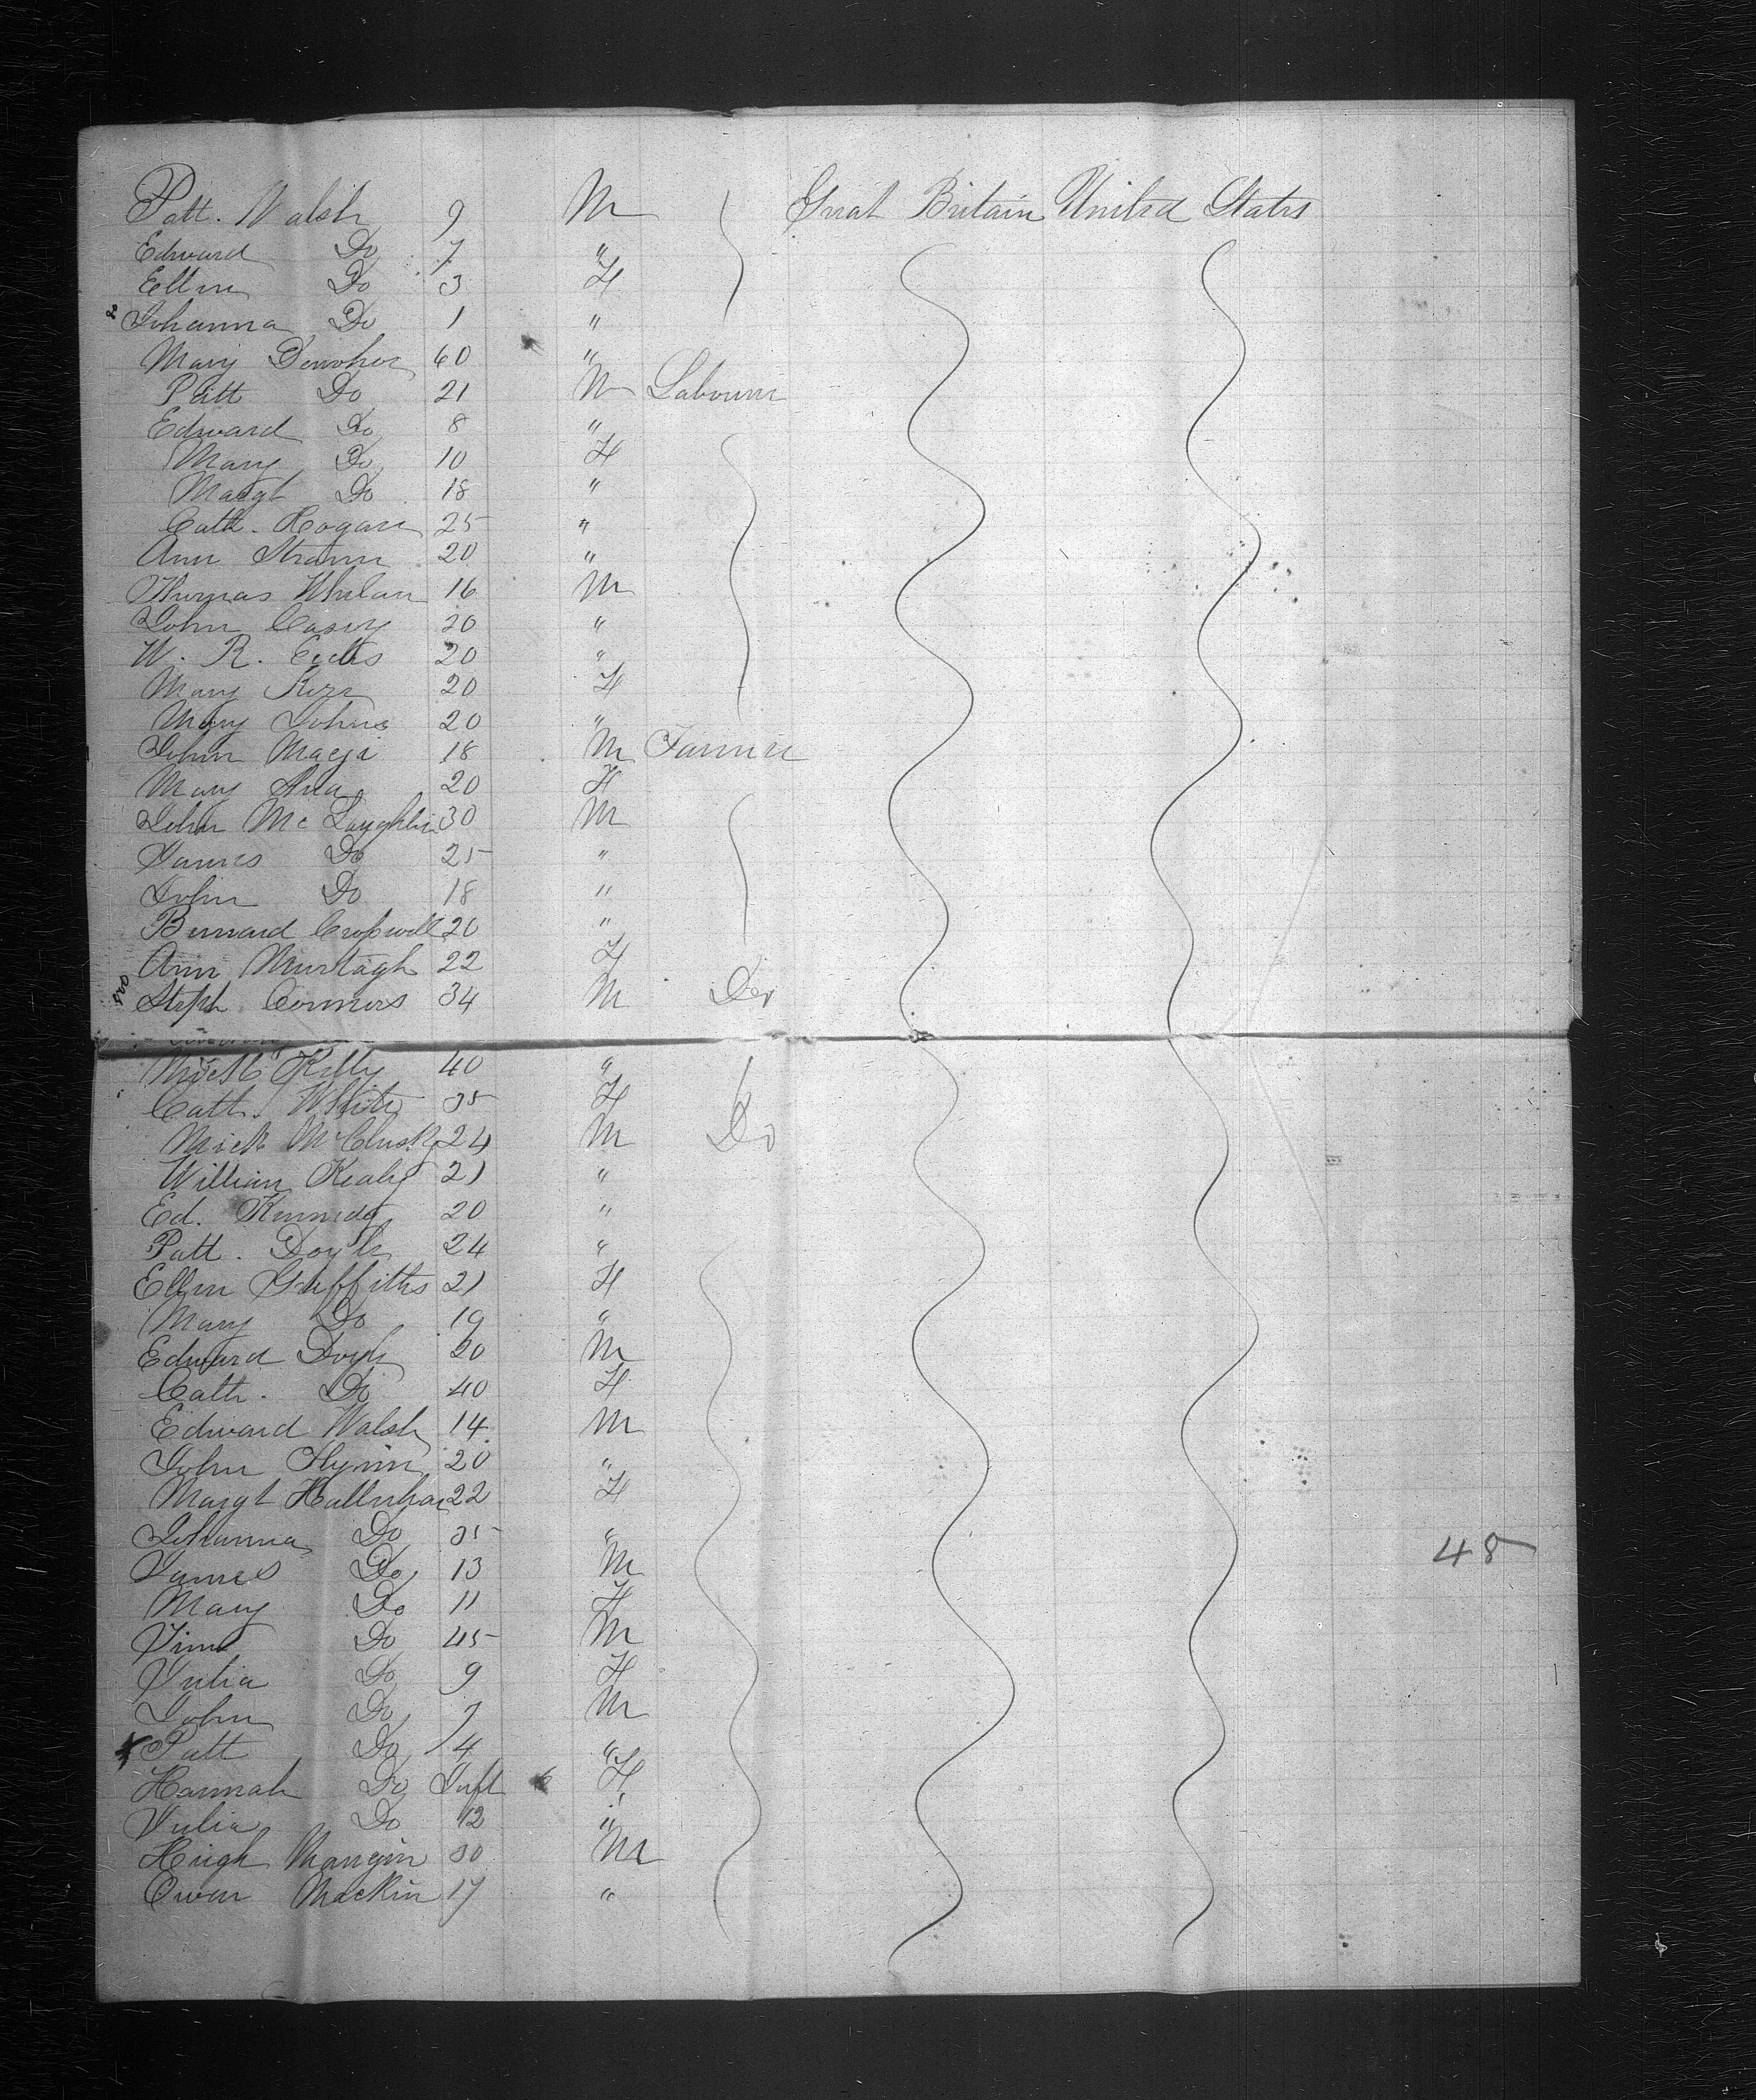 Patt. Walsh 9 M Great Britain United States
Edward Do 7 "
Ellen Do 3 F
Johanna Do 1 "
Mary Donohoe 60 "
Patt Do 21 M Labourer
Edward Do 8 "
Mary Do 10 F
Margt Do 18 "
Cath. Hogan 25 "
Ann 20 "
Thomas Whelan 16 M
John Casey 20 "
W. R. 20 "
Mary Kerr 20 F
Mary Johns 20 "
John 18 M Farmer
Mary 20 F
John McLaughlin 30 M
James Do 25 "
John Do 18 "
Bernard Croswell 20 "
Ann Murtagh 22 F
Steph. Connors 34 M Do
Mick Kelly 40 "
Cath. White 35 F
Mick McClusky 24 M Do
William Kealy 21 "
Ed. Kennedy 20 "
Patt. Doyle 24 "
Ellen Griffiths 21 F
Mary Do 19 "
Edward Doyle 20 M
Cath. Do 40 F
Edward Walsh 14 M
John Flynn 20 "
Margt 22 F
Johanna Do 35 "
48
James Do 13 M
Mary Do 11 F
Tim Do 45 M
Julia Do 9 F
John Do 7 M
Patt Do 4 "
Hannah Do Inft F
Julia Do 12 "
Hugh Mangin 30 M
Owen Mackin 17 "